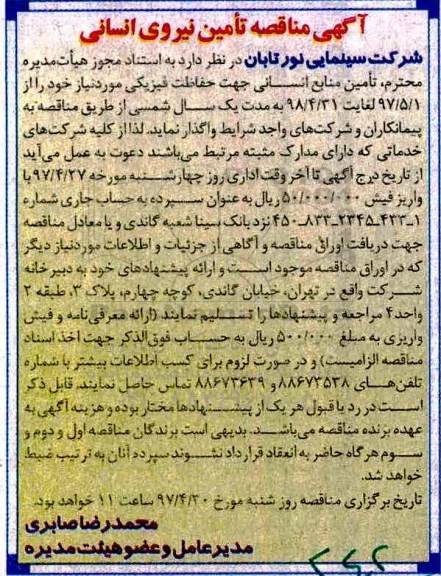 آگهی مناقصه تأمین نیروی انسانی
شرکت سینمایی نور تابان در نظر دارد به استناد مجوز هیأت‌مدیره
محترم، تأمین منابع انسانی جهت حفاظت فیزیکی موردنیاز خود را از
۹۷/۵/۱ لغایت ۹۸/۴/۳۱ به مدت یک سال شمسی از طریق مناقصه به
پیمانکاران و شرکت‌های واجد شرایط واگذار نماید. لذا از کلیه شرکت‌های
خدماتی که دارای مدارک مثبته مرتبط می‌باشند دعوت به عمل می‌آید
از تاریخ درج آگهی تا آخر وقت اداری روز چهارشنبه مورخه ۹۷/۴/۲۷ با
واریز فیش ۵۰/۰۰۰/۰۰۰ ریال به عنوان سپرده به حساب جاری شماره
۱ـ۴۳۳ـ۲۳۴۵ـ۸۳۳ـ۴۵۰ نزد بانک سینا شعبه گاندی و یا معادل مناقصه
جهت دریافت اوراق مناقصه و آگاهی از جزئیات و اطلاعات موردنیاز دیگر
که در اوراق مناقصه موجود است و ارائه پیشنهادهای خود به دبیرخانه
شرکت واقع در تهران، خیابان گاندی، کوچه چهارم، پلاک ۳، طبقه ۲
واحد ۴ مراجعه و پیشنهادها را تسلیم نمایند (ارائه معرفی‌نامه و فیش
واریزی به مبلغ ۵۰۰/۰۰۰ ریال به حساب فوق‌الذکر جهت اخذ اسناد
مناقصه الزامیست) و در صورت لزوم برای کسب اطلاعات بیشتر با شماره
تلفن‌های ۸۸۶۷۳۵۳۸ و ۸۸۶۷۳۶۳۹ تماس حاصل نمایند. قابل ذکر
است در رد یا قبول هر یک از پیشنهادها مختار بوده و هزینه آگهی به
عهده برنده مناقصه می‌باشد. بدیهی است برندگان مناقصه اول و دوم و
سوم هرگاه حاضر به انعقاد قرارداد نشوند سپرده آنان به ترتیب ضبط
خواهد شد.
تاریخ برگزاری مناقصه روز شنبه مورخ ۹۷/۴/۳۰ ساعت ۱۱ خواهد بود.
محمدرضا صابری
مدیرعامل و عضو هیئت مدیره